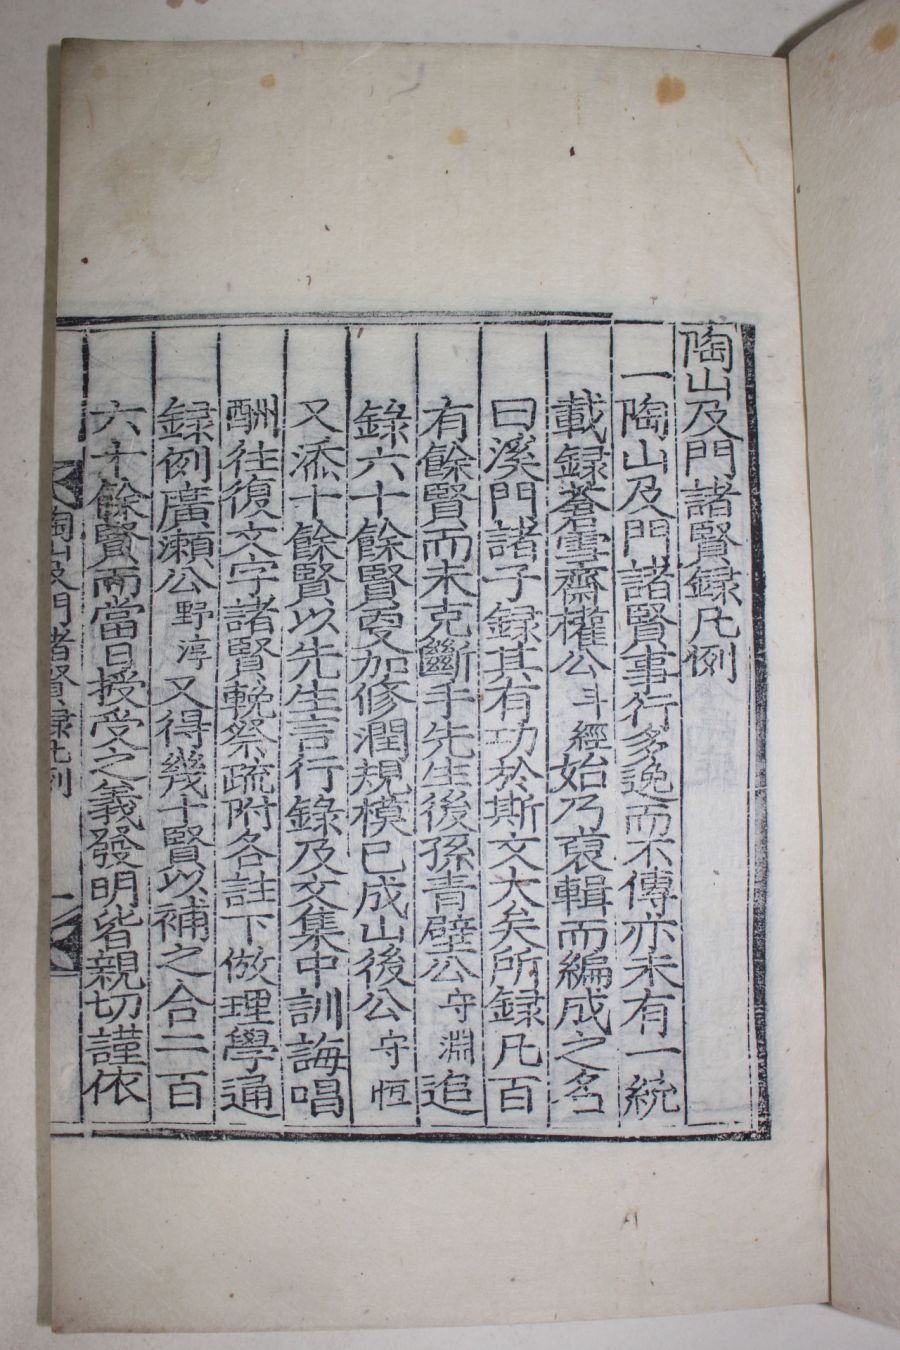 陶山及門諸賢録凡例
一陶山及門諸賢事行多逸而不傳亦未有一統
載録蒼雪齋權公斗經始乃裒輯而編成之名
曰溪門諸子録其有功於斯文大矣所録凡百
有餘賢而未克斷手先生後孫青壁公守淵追
錄六十餘賢更加修潤規模已成山後公守恒
又添十餘賢以先生言行錄及文集中訓誨唱
酬往復文字諸賢輓祭疏附各註下倣理學通
録例廣瀬公野淳又得幾十賢以補之合二百
六十餘賢而當日授受之義發明皆親切謹依
陶山及門諸賢録凡例